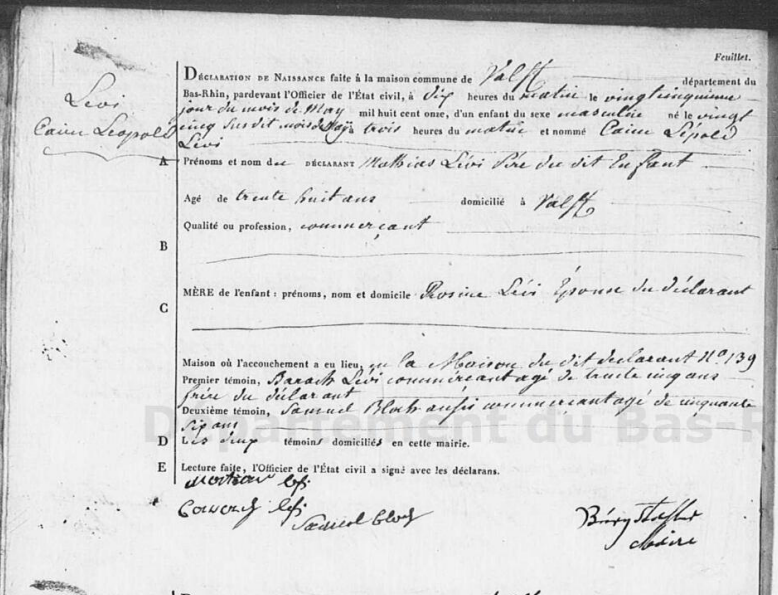 Feuillet.
Lévi
Caim Léopold
DÉCLARATION DE NAISSANCE faite à la maison commune de Valff département du
Bas-Rhin, pardevant l'Officier de l'État civil, à dix heures du matin le vingtcinquieme
jour du mois de May mil huit cent onze, d'un enfant du sexe masculin né le vingt
cinq susdit mois de May à trois heures du matin et nommé Caim Lépold
Lévi
A Prénoms et nom du DÉCLARANT Mathias Lévi Père du dit Enfant
Agé de trente huit ans domicilié à Valff
Qualité ou profession, commerçant
B
MÈRE de l'enfant : prénoms, nom et domicile Rosine Lévi Epouse du déclarant
C
Maison où l'accouchement a eu lieu, en la Maison du dit declarant N° 139
Premier témoin, Barach Levi commercant agé de trente cinq ans
frère du déclarant
Deuxième témoin, Samuel Bloch aussi commercant agé de cinquante
six ans
D Les deux témoins domiciliés en cette mairie.
E Lecture faite, l'Officier de l'État civil a signé avec les déclarans.
Samuel Bloch
Maire
Département du Bas-R